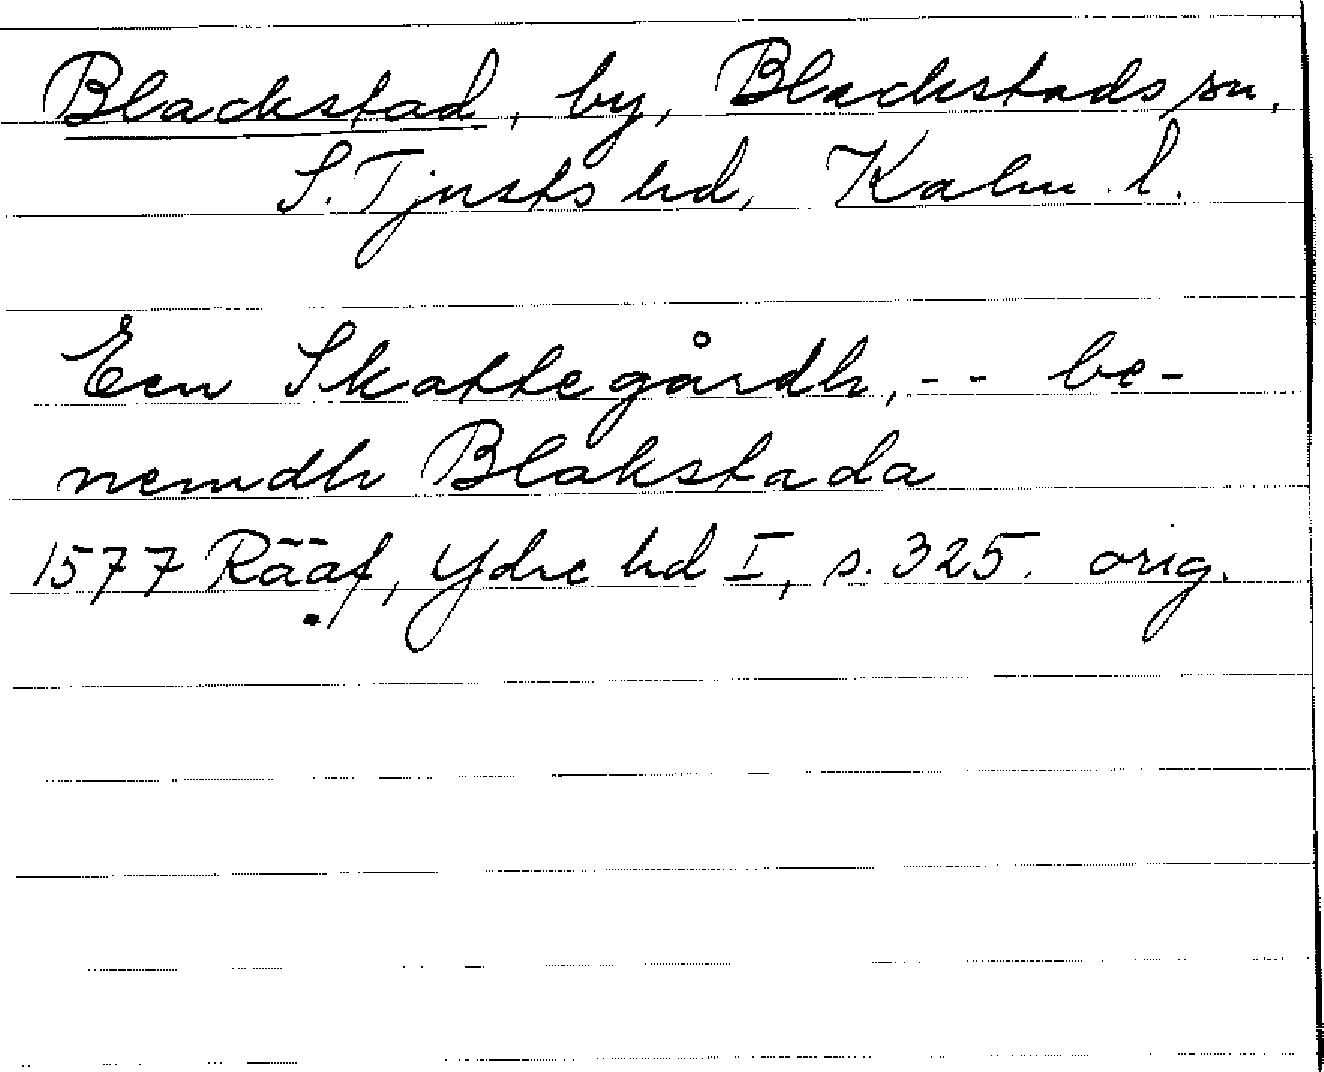 Blackstad, by, Blackstads sn.
S. Tjusts hd, Kalm. l.
Een Skattegårdh, - - be-
nemdh Blakstada
1577 Rääf, Ydre hd I, s. 325. orig.